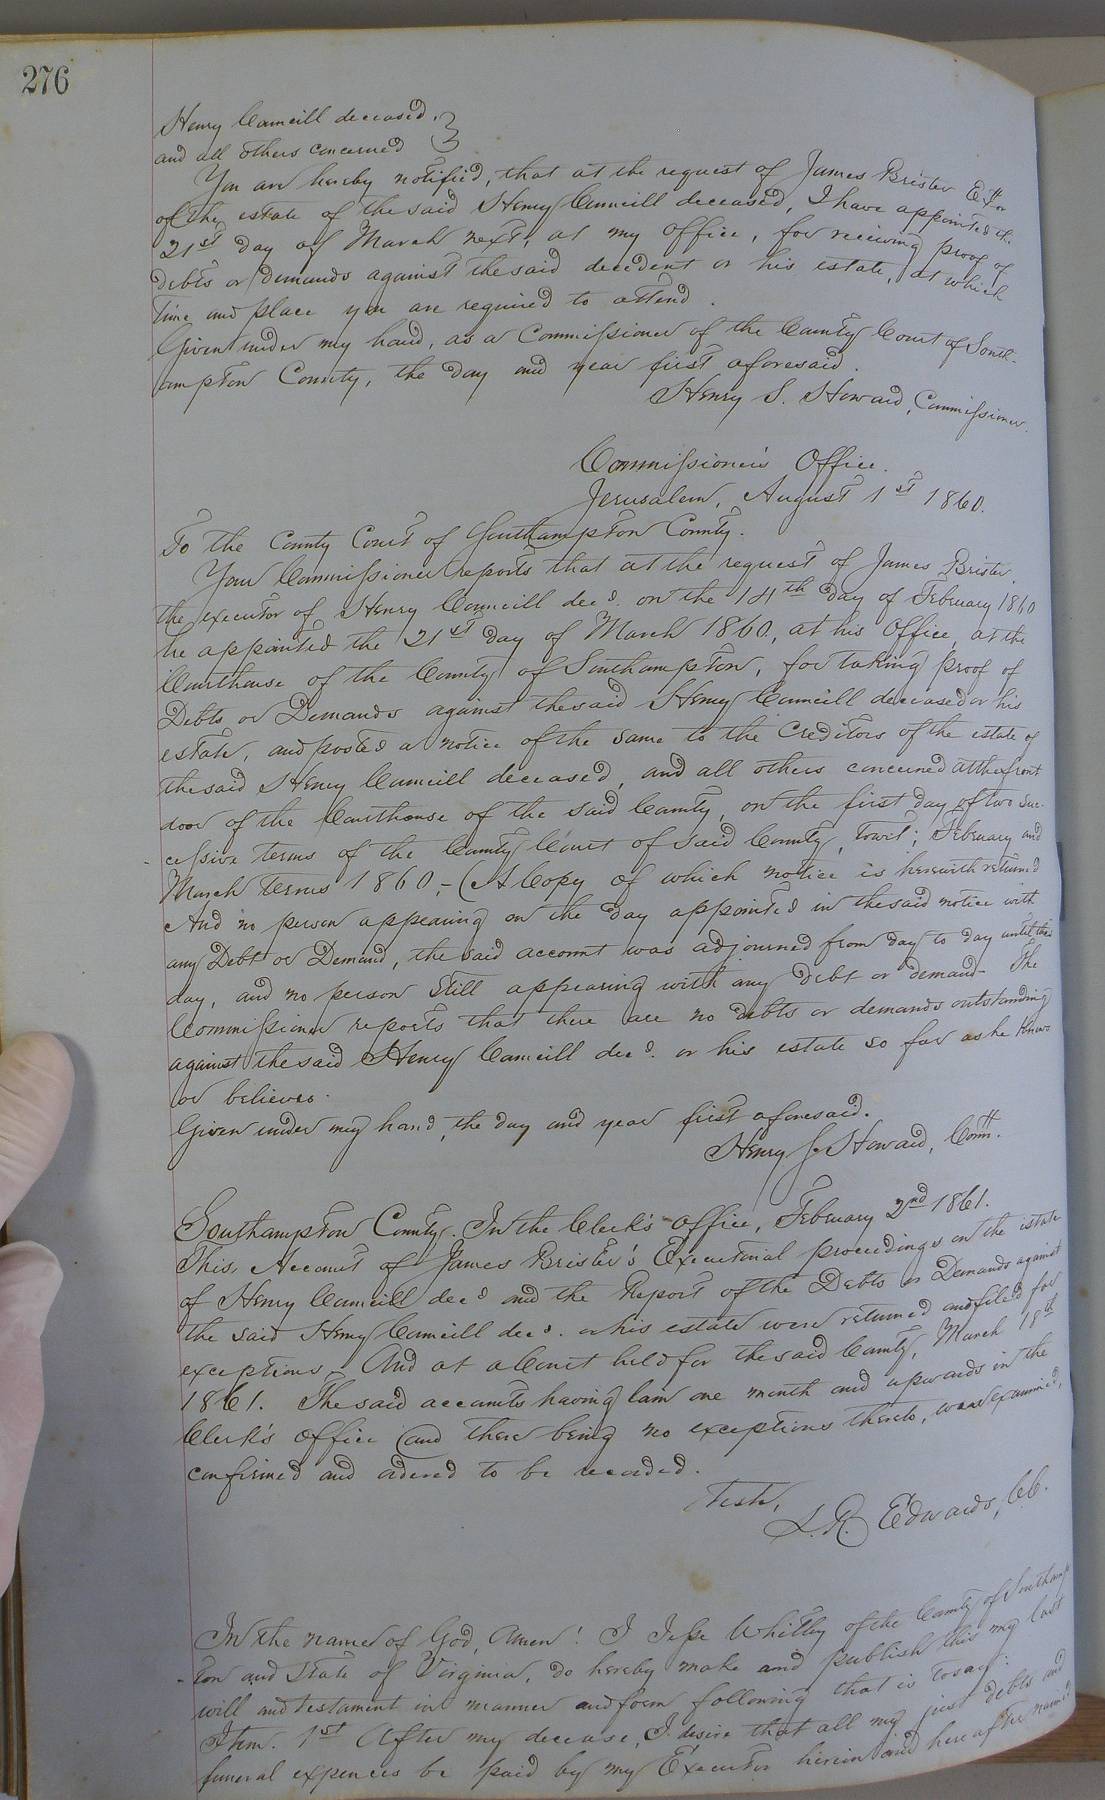 276
Henry Councill deceased.
and all others concerned
You are hereby notified, that at the request of James Brister Extr
of the estate of the said Henry Councill deceased, I have appointed the
21st day of March next, at my office, for receiving proof of
debts or demands against the said decedent or his estate, at which
time and place you are required to attend.
Given under my hand, as a Commissioner of the County Court of South-
ampton County, the day and year first aforesaid.
Henry S. Howard, Commissioner.
Commissioner's Office.
Jerusalem, August 1st 1860.
To the County Court of Southampton County.
Your Commissioner reports that at the request of James Brister,
the executor of Henry Councill decd. on the 14th day of February 1860
he appointed the 21st day of March 1860, at his Office, at the
Courthouse of the County of Southampton, for taking proof of
Debts or Demands against the said Henry Councill deceased or his
estate, and posted a notice of the same to the Creditors of the estate of
the said Henry Councill deceased, and all others concerned at the front
door of the Courthouse of the said County, on the first day of two suc-
cessive terms of the County Court of said County, towit; February and
March Terms 1860,- (A Copy of which notice is herewith returned
And no person appearing on the day appointed in the said notice with
any Debt or Demand, the said account was adjourned from day to day until this
day, and no person still appearing with any debt or demand- The
Commissioner reports that there are no debts or demands outstanding
against the said Henry Councill decd. or his estate so far as he knows
or believes.
Given under my hand, the day and year first aforesaid.
Henry S. Howard, Comr.
Southampton County. In the Clerk's office, February 2nd 1861.
This Account of James Brister's Executorial proceedings on the estate
of Henry Councill decd and the Report of the Debts or Demands against
the said Henry Councill decd. or his estate were returned and filed for
exceptions- And at a Court held for the said County, March 18th
1861. The said accounts having lain one month and upwards in the
Clerk's office and there being no exceptions thereto, was examined,
confirmed and ordered to be recorded.
Teste,
L. R. Edwards, CC.
In the name of God, Amen! I Jesse Whitley of the County of Southamp
-ton and State of Virginia, do hereby make and publish this my last
will and testament in manner and form following that is to say:
Item. 1st After my decease, I desire that all my just debts and
funeral expences be paid by my Executor herein and hereafter named